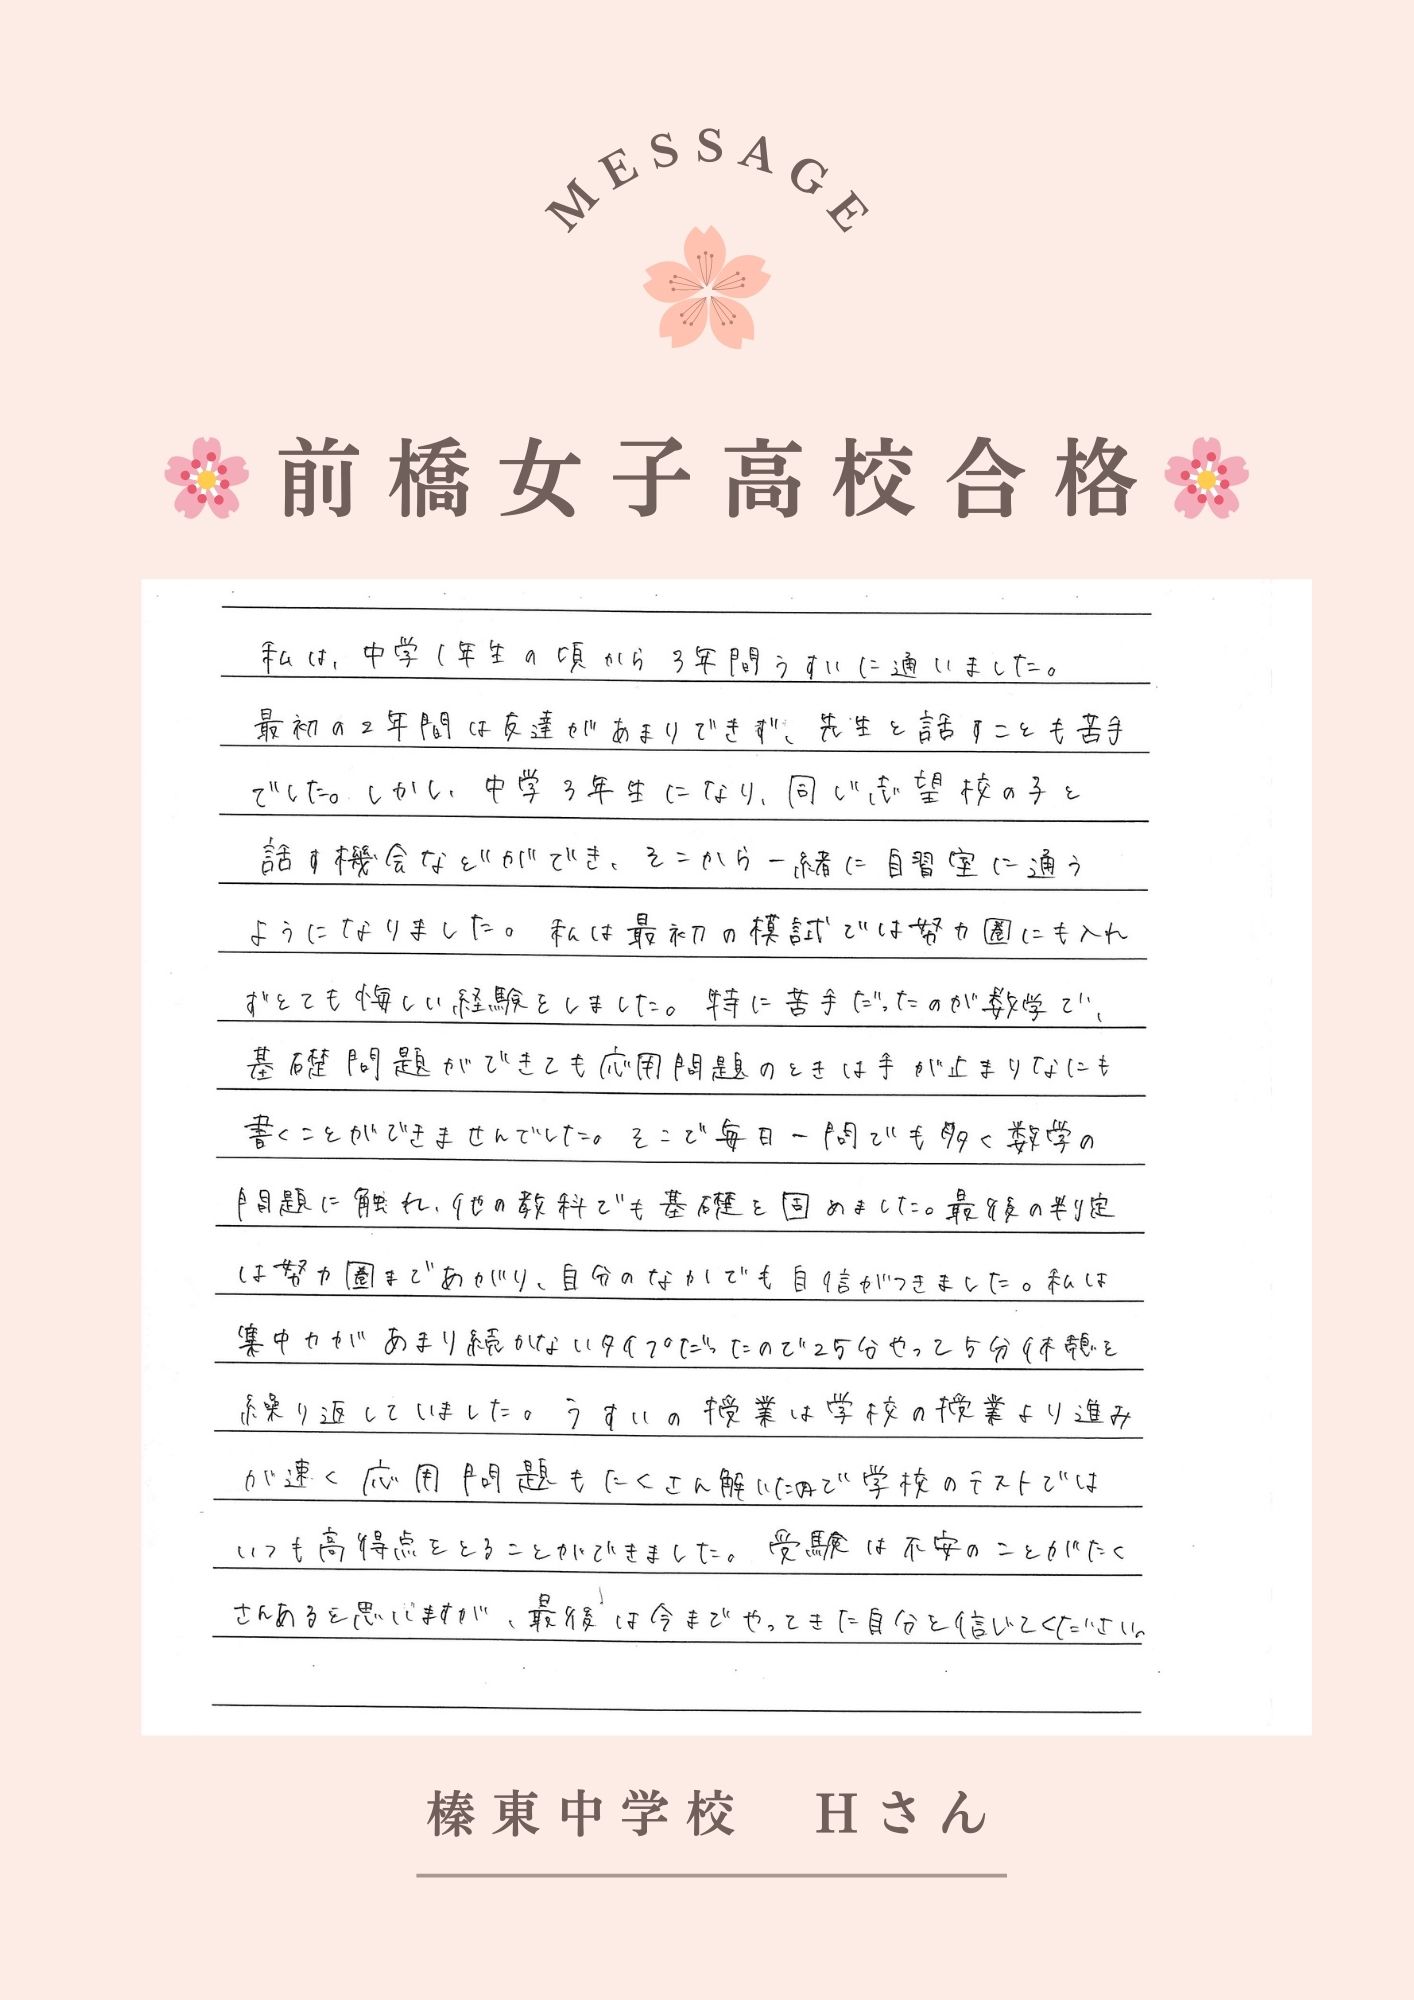 MESSAGE
前橋女子高校合格
私は、中学1年生の頃から3年間うすいに通いました。
最初の2年間は友達があまりできず、先生と話すことも苦手
でした。しかし、中学3年生になり、同じ志望校の子と
話す機会などができ、そこから一緒に自習室に通う
ようになりました。私は最初の模試では努力圏にも入れ
ずとても悔しい経験をしました。特に苦手だったのが数学で、
基礎問題ができても応用問題のときは手が止まりなにも
書くことができませんでした。そこで毎日一問でも多く数学の
問題に触れ、他の教科でも基礎を固めました。最後の判定
は努力圏まであがり、自分のなかでも自信がつきました。私は
集中力があまり続かないタイプだったので25分やって5分休憩を
繰り返していました。うすいの授業は学校の授業より進み
が速く応用問題もたくさん解いたので学校のテストでは
いつも高得点をとることができました。受験は不安のことがたく
さんあると思いますが、最後は今までやってきた自分を信じてください。
榛東中学校 Hさん